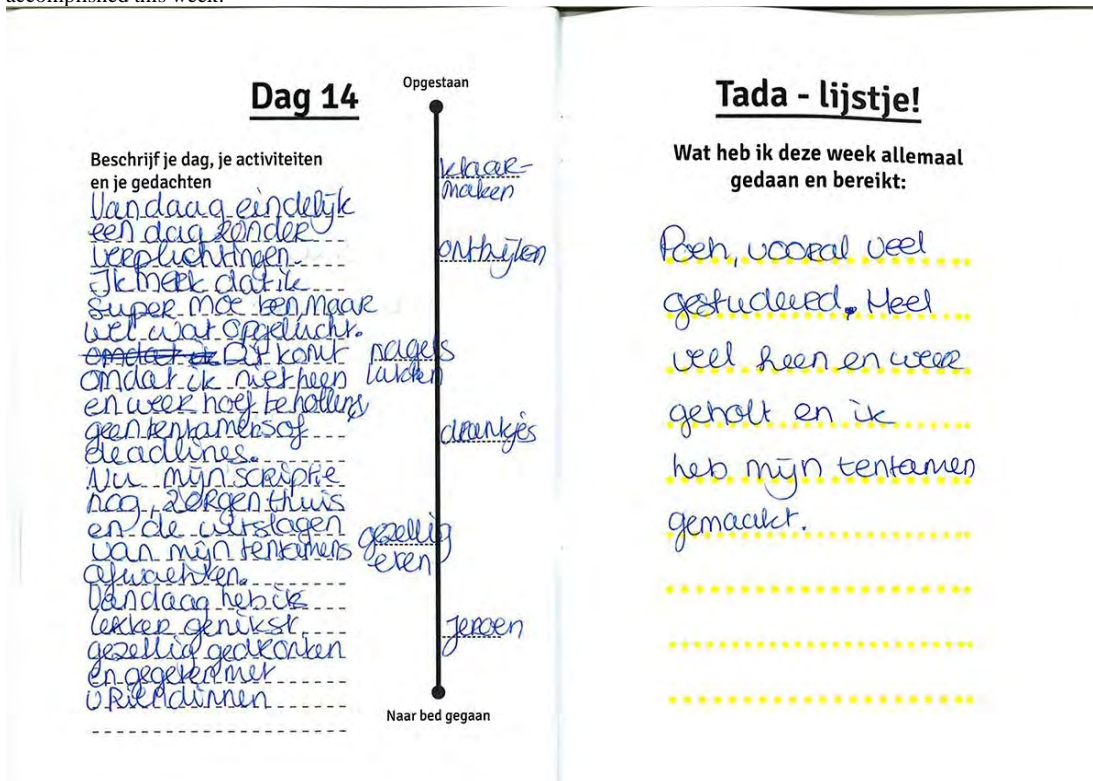 accomplished this week.
Dag 14
Beschrijf je dag, je activiteiten
en je gedachten
Vandaag eindelijk
een dag zonder
verplichtingen.
Ik merk dat ik
super moe ben maar
wel wat opgelucht.
Dit komt
omdat ik niet heen
en weer hoef te hollen,
geen tentamens of
deadlines.
Nu mijn scriptie
nog, zorgen thuis
en de uitslagen
van mijn tentamens
afwachten.
Vandaag heb ik
lekker genikst,
gezellig gedronken
en gegeten met
vriendinnen
Opgestaan
klaar-
maken
ontbijten
nagels
lakken
drankjes
gezellig
eten
Jeroen
Naar bed gegaan
Tada - lijstje!
Wat heb ik deze week allemaal
gedaan en bereikt:
Poeh, vooral veel
gestudeerd. Heel
veel heen en weer
geholt en ik
heb mijn tentamen
gemaakt.